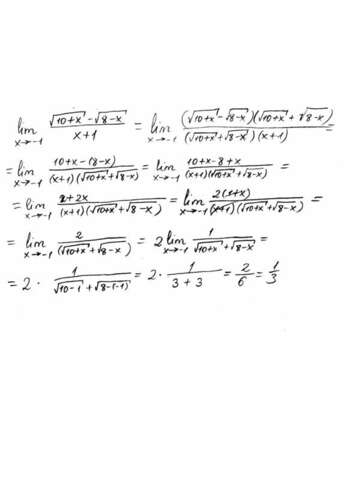 lim x→-1 (√(10+x) - √(8-x))/(x+1) = lim x→-1 ((√(10+x) - √(8-x))(√(10+x) + √(8-x)))/((√(10+x) + √(8-x))(x+1)) =
= lim x→-1 (10+x-(8-x))/((x+1)(√(10+x) + √(8-x))) = lim x→-1 (10+x-8+x)/((x+1)(√(10+x) + √(8-x))) =
= lim x→-1 (2+2x)/((x+1)(√(10+x) + √(8-x))) = lim x→-1 2(x+x)/((x+1)(√(10+x) + √(8-x))) =
= lim x→-1 2/(√(10+x) + √(8-x)) = 2 lim x→-1 1/(√(10+x) + √(8-x)) =
= 2 · 1/(√(10-1) + √(8-(-1))) = 2 · 1/(3+3) = 2/6 = 1/3